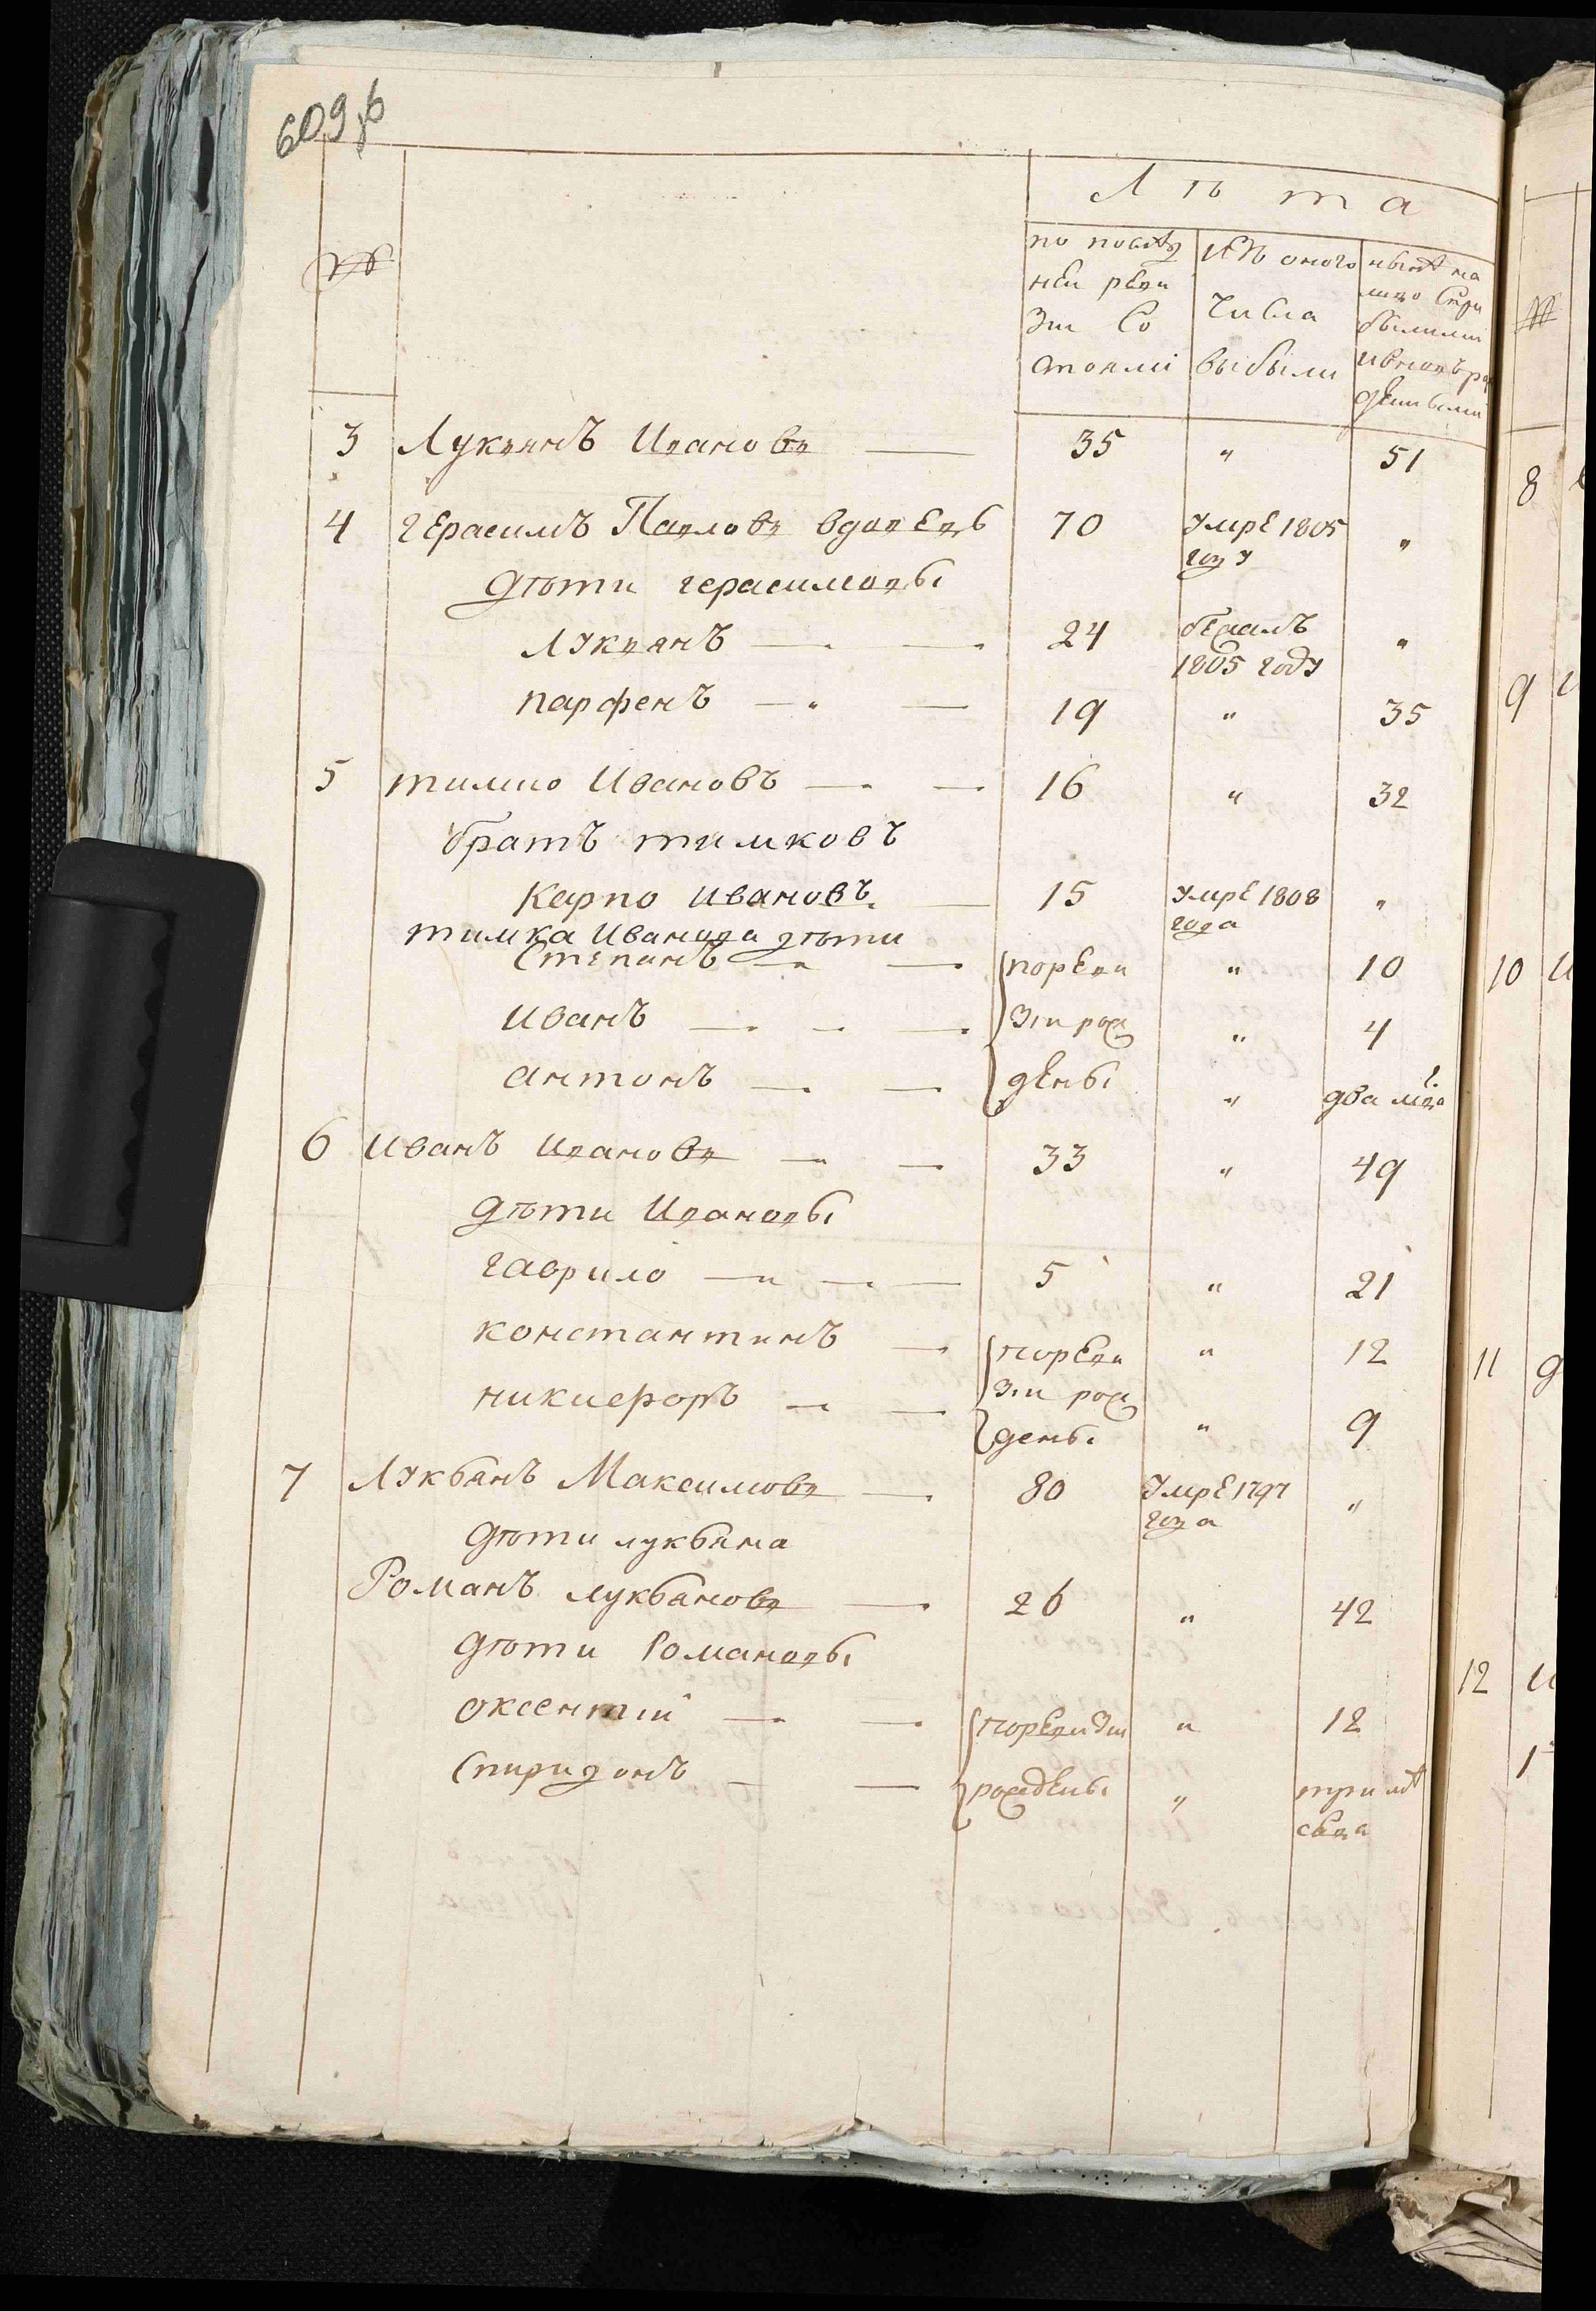 609об
Лѣта
№
по послѣд
ней реви
зіи со
стояли
изъ оного
числа
выбыли
нынѣ на
лицо с при
былыми
и вновь ро
жденными
3 Лукьянъ Ивановъ 35 " 51
4 Герасимъ Павловъ вдовецъ 70 умре 1805 "
году
дѣти герасимовы
Лукьянъ 24 бежалъ "
1805 году
парфенъ 19 " 35
5 тимко Ивановъ 16 " 32
братъ тимковъ
Карпо Ивановъ 15 умре 1808 "
года
тимка Иванова дѣти
Степанъ по реви " 10
Иванъ зіи рож " 4
антонъ дены " два мца
6 Иванъ Ивановъ 33 " 49
дѣти Ивановы
гаврило 5 " 21
константинъ по реви " 12
зіи рож
никиѳоръ дены " 9
7 Лукьянъ Максимовъ 80 умре 1797 "
года
дѣти лукьяна
Романъ лукьяновъ 26 " 42
дѣти Романовы
оксентій по ревизіи " 12
Спиридонъ рождены " три мѣ
сяца
№
8
9
10
11
12